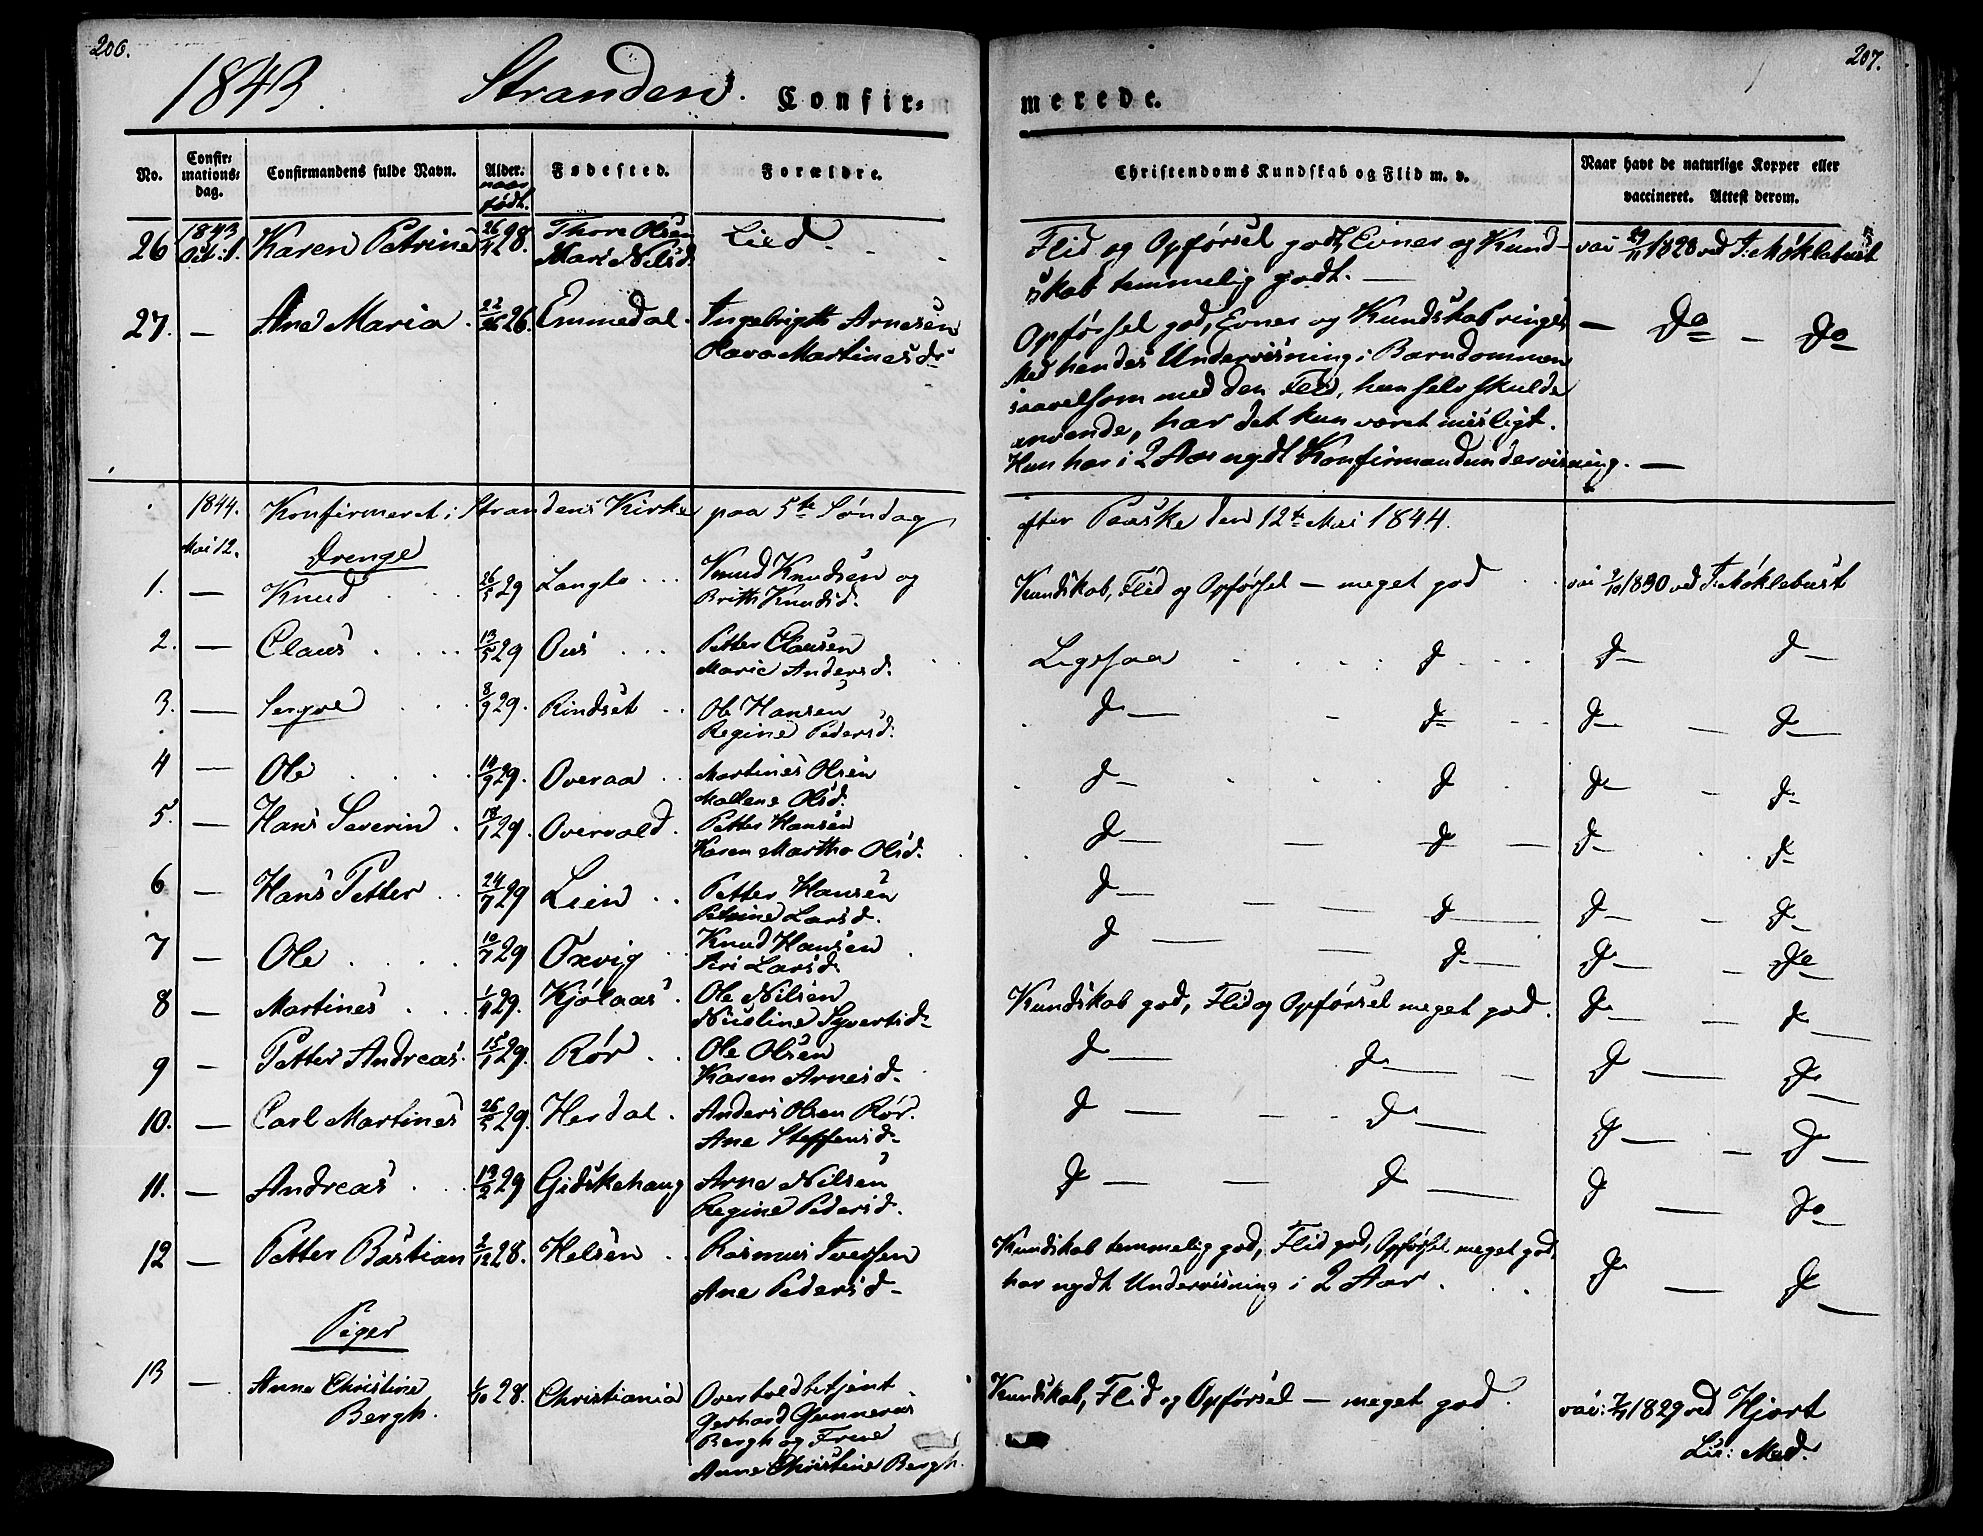 206.
1843. Stranden. Confir-
No.
Confir-
mations-
dag.
Confirmandens fulde Navn.
Alder.
naar
født.
Fødested.
Forældre.
26 1843 Oct. 1. Karen Petrine 28. Thore Olsen Lied
Mari Nilsd.
27. — Ane Maria 26. Emmedal. Ingebrigth Arnesen
Martinesd.
1844. Konfirmeret i Strandens Kirke paa 5te Søndag
Mai 12.
Drenge
1. — Knud 26/5 29 Langlo Knud Knudsen og
Brith Knudsd.
2. — Claus 13/5 29 Ous Petter Clausen
Marie Andersd.
3. — 8/9 29. Rindset Ole Hansen
Regine Pedersd.
4 — Ole 10/9 29. Overaa Martines Olsen
Malene Olsd.
5. — Hans Severin 18/1 29. Overvold. Petter Hansen
Karen Martha Olsd.
6 — Hans Petter 24/7 29 Lien Petter Hansen
Petrine Larsd.
7 — Ole 10/7 29 Oxvig Knud Hansen
Siri Larsd.
8 — Martines 29. Kjølaas Ole Nilsen
Syvertsd.
9 — Petter Andreas 15/1 29. Rør Ole Olsen
Karen Arnesd.
10. — Carl Martines 26/5 29. Herdal. Anders Olsen Rør.
Ane Steffensd.
11. — Andreas 13/2 29 Gidskehaug Arne Nilsen
Regine Pedersd.
12 — Petter Bastian 2/12 28. Helsen Rasmus Iversen
Ane Pedersd.
Piger
13 — Anne Christine
Bergh.
1/10 28. Christiania Overtoldbetjent
Gerhard Gunnerus
Bergh og Frue
Anne Christine Bergh.
207.
merede.
Christendoms Kundskab og Flid m. v.
Naar havt de naturlige Kopper eller
vaccineret. Attest derom.
Flid og Opførsel godt, Evner og Kund-
skab temmelig godt. —
vac 1828 ved J. Møklebust
Opførsel god, Evner og Kundskab ringe. — Do — Do
Med hendes Undervisning i Barndommen
saavelsom med den Flid, hun selv skulde
anvende, har det kun været misligt.
Hun har i 2 Aar nydt Konfirmandundervisning. —
efter Paaske den 12te Mai 1844.
Kundskab, Flid og Opførsel — meget god vac 9/10 1830 ved J. Møklebust
Ligesaa D D D
D D D D
D D D D
D D D D
D D D D
D D D Do
Kundskab god, Flid og Opførsel meget god. D D
D D D D
D D D D
D D D Do
Kundskab temmelig god, Flid god, Opførsel meget god,
har nydt Undervisning i 2 Aar. D D
Kundskab, Flid og Opførsel — meget god. vac: 1829 ved Hjort
Lic: Med.